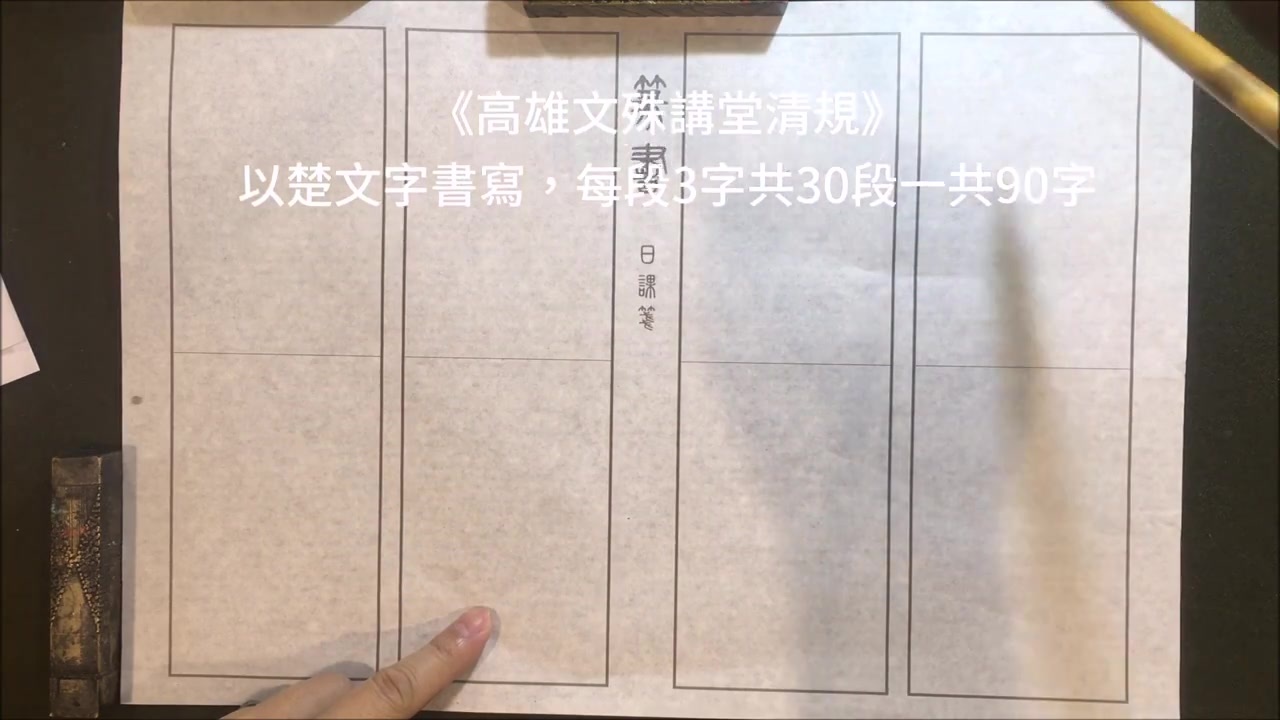 《高雄文殊講堂清規》
以楚文字書寫，每段3字共30段一共90字
篆書
日課箋